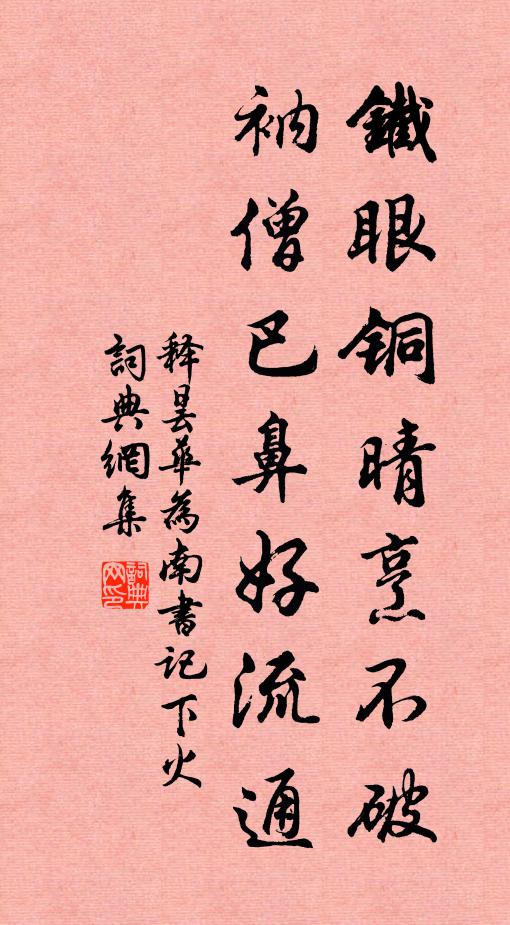 鐵眼銅晴烹不破
衲僧巴鼻好流通
释昙華為南書記下火
詞典網集
詞典
网印